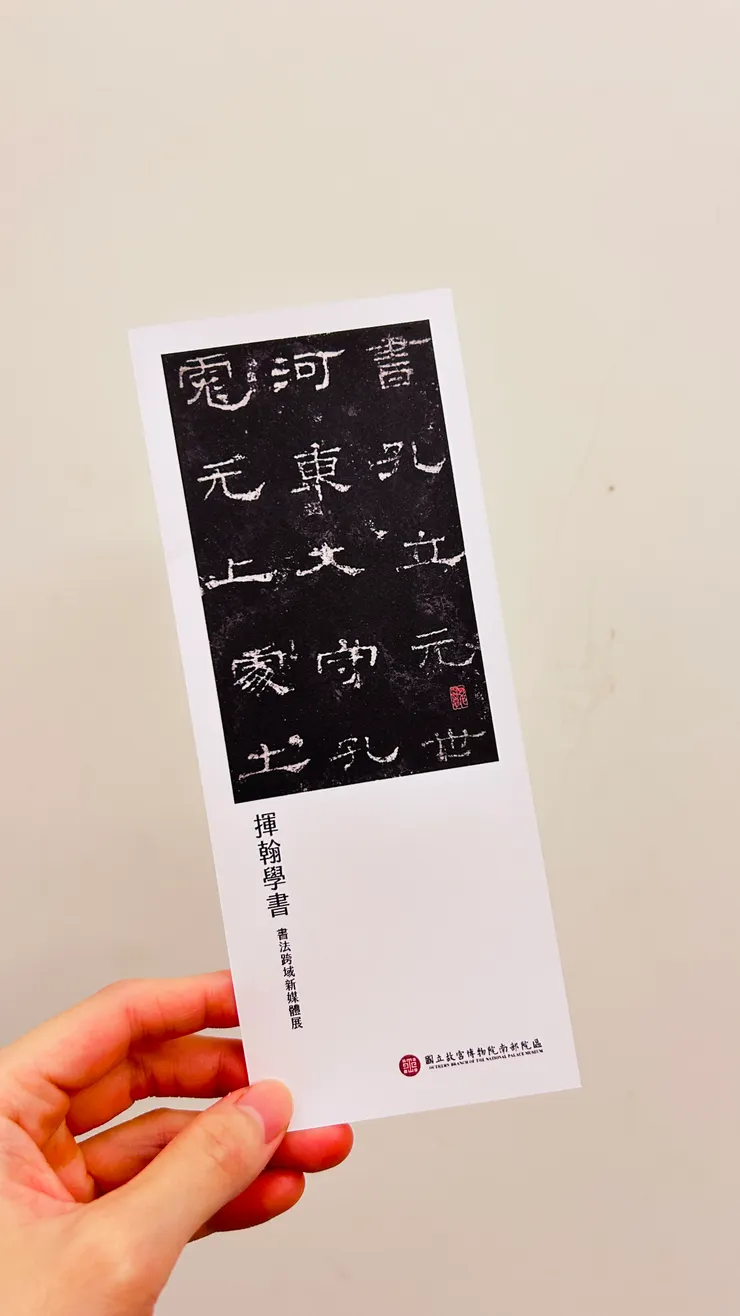 書孔立元世
河東大守孔
彪元上處士
揮翰學書
書法跨域新媒體展
國立故宮博物院南部院區
SOUTHERN BRANCH OF THE NATIONAL PALACE MUSEUM